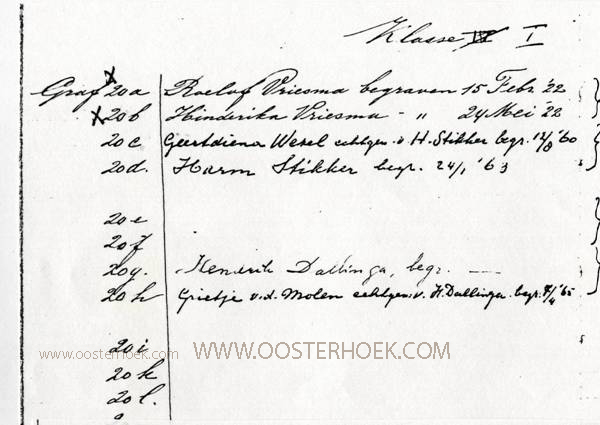 Klasse IV I
Graf x 20a Roelof Vriesma begraven 15 Febr. '22
x 20b Hinderika Vriesma - „ 24 Mei '22
20c Geertdiena Wessel echtgen. v H. Stikker begr. 12/8 '60
20d. Harm Stikker begr. 24/1 '63
20e
20f
20g. Hendrik Dallinga, begr. —
20h Grietje v.d. Molen echtgen. v. H. Dallinga begr. 8/4 '65
20i
www.oosterhoek.com WWW.OOSTERHOEK.COM
20k
20l.